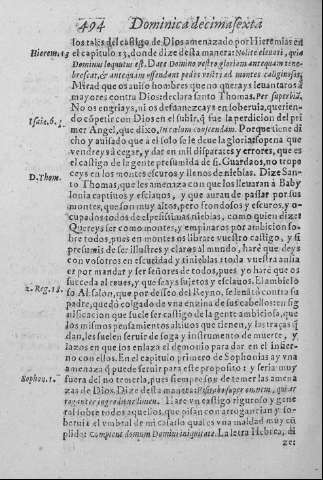 494 Dominica decimasexta
los tales del castigo de Dios amenazado por Hieremias en
Hierem. 13 el capitulo 13, donde dize desta manera: Nolite eleuari, quia
Dominus loquutus est. Date Domino vestro gloriam antequam tene-
brescat, & antequam offendant pedes vestri ad montes caliginosos.
Mirad que os auiso hombres que no querays leuantaros a
mayores contra Dios: declara santo Thomas. Per superbiã.
No os engriays, ni os desuanezcays en soberuia, querien-
do cõpetir con Dios en el subir, q̃ fue la perdicion del pri
Isaie. 6. mer Angel, que dixo, In cœlum conscendam. Porque tiene di
cho y auisado que a el solo se le deue la gloria: so pena que
vendreys a cegar, y dar en mil disparates y errores, que es
el castigo de la gente presumida de si. Guardaos, no trope
ceys en los montes escuros y llenos de nieblas. Dize San-
D. Thom. to Thomas, que les amenaza con que los lleuaran à Baby
lonia captiuos y esclauos, y que auran de passar por sus
montes, que son muy altos, pero frondosos y escuros, y o-
cupados todos de espesissimas nieblas, como quien dize:
Quereys ser como montes, y empinaros por ambicion so-
bre todos, pues en montes os librare vuestro castigo, y si
presumis de ser illustres y claros al mundo, harè que deys
con vosotros en escuridad y tinieblas: toda vuestra ansia
es por mandar y ser señores de todos, pues yo harè que os
succeda al reues, y que seays sujetos y esclauos. El ambicio
2. Reg. 18. so Absalon, que por desseo del Reyno, se leuãtò contra su
padre, quedò colgado de vna enzina de sus cabellos: en sig
nificacion que suele ser castigo de la gente ambiciosa, que
los mismos pensamientos altiuos que tienen, y las traças q̃
dan, les suelen seruir de soga y instrumento de muerte, y
lazos en que los enlaza el demonio para dar en el infier-
no con ellos. En el capitulo primero de Sophonias ay vna
amenaza q̃ puede seruir para este proposito: y seria muy
Sophon. 1. fuera del no temerla, pues siempre son de temer las amena
zas de Dios. Dize desta manera: Visitabo super omnem, qui ar
roganter ingreditur limen. Hare vn castigo riguroso y gene
ral sobre todos aquellos, que pisan con arrogancia y so-
beruia el vmbral de mi casa: lo qual es vna maldad muy cũ
plida: Complent domum Domini iniquitate. La letra Hebrea, di
ze: